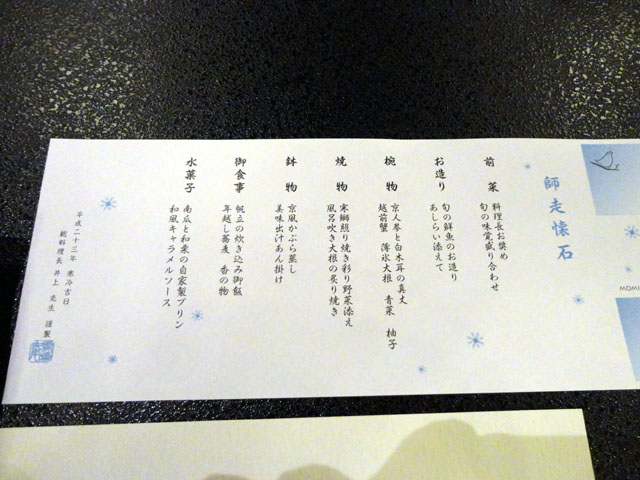 師走懐石
前菜
料理長お奨め
旬の味覚盛り合わせ
お造り
旬の鮮魚のお造り
あしらい添えて
椀物
京人参と白木耳の真丈
越前蟹 薄氷大根 青菜 柚子
焼物
寒鰤照り焼き彩り野菜添え
風呂吹き大根の炙り焼き
鉢物
京風かぶら蒸し
美味出汁あん掛け
御食事
帆立の炊き込み御飯
年越し蕎麦 香の物
水菓子
南瓜と和栗の自家製プリン
和風キャラメルソース
平成二十三年 寒冷吉日
総料理長 井上 克生 謹製
MOMI